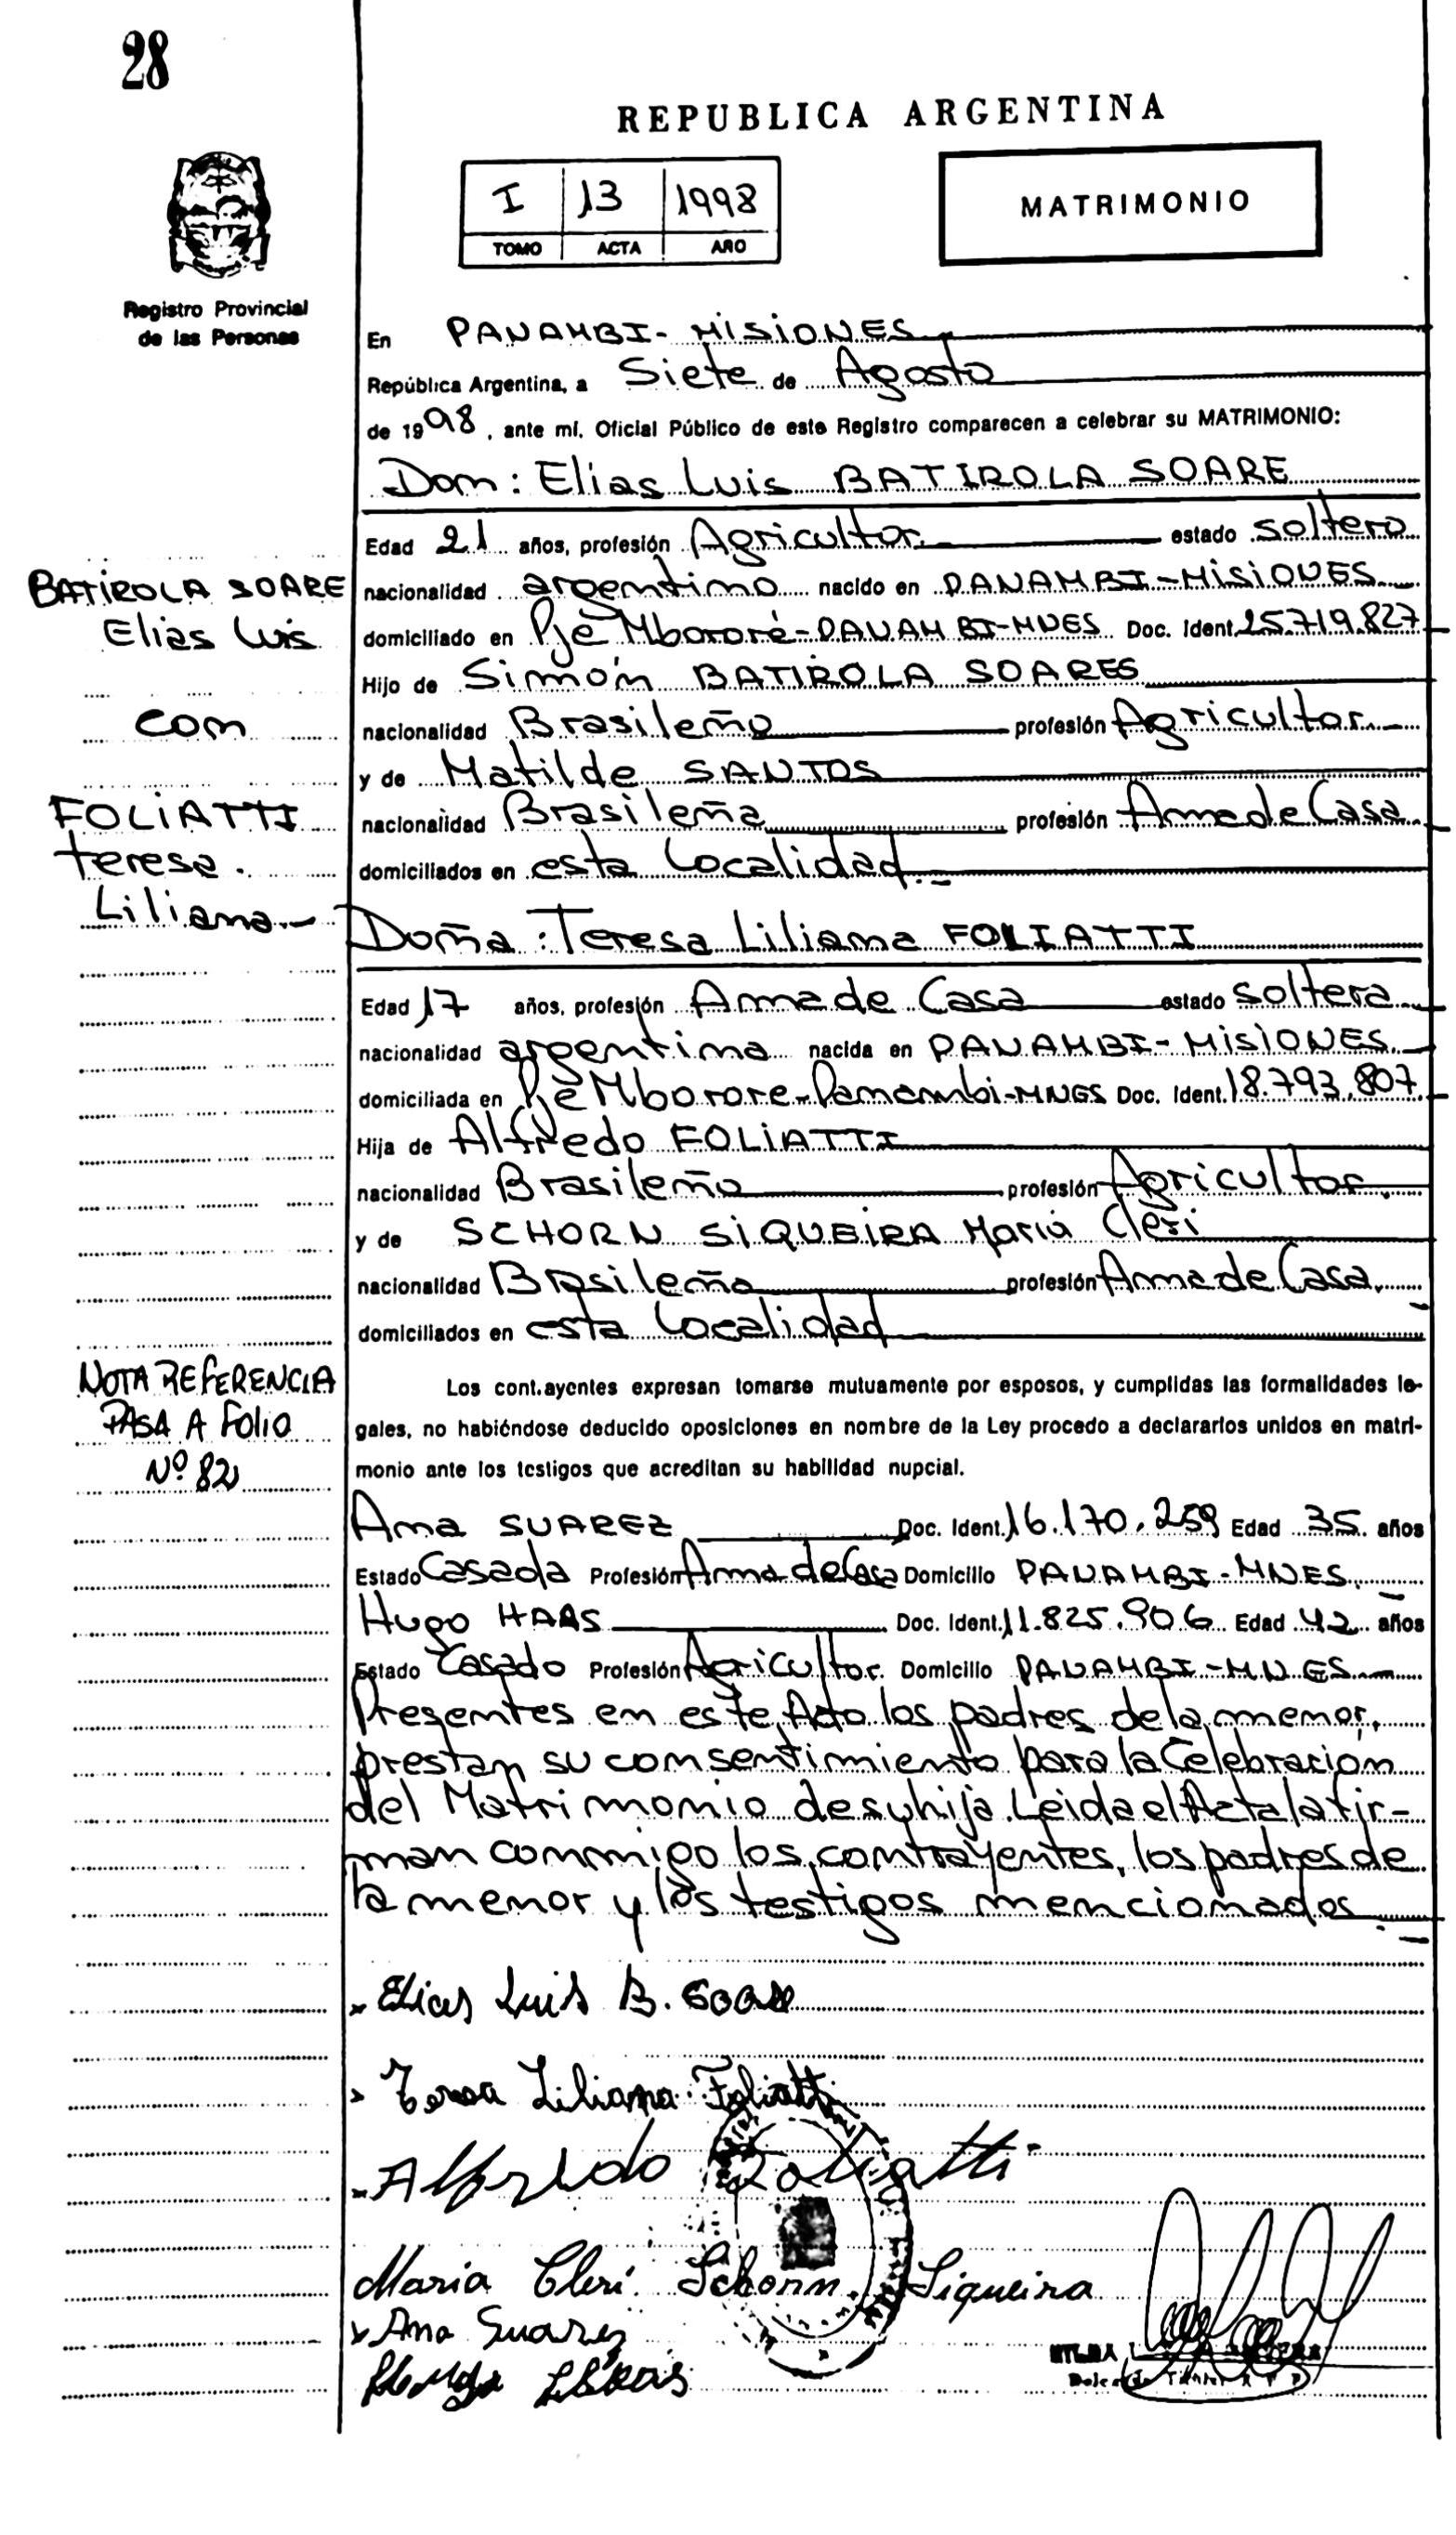 28
REPUBLICA ARGENTINA
I 13 1998
TOMO ACTA AÑO
MATRIMONIO
Registro Provincial
de las Personas
En PANAMBI - MISIONES
República Argentina, a Siete de Agosto
de 1998, ante mí, Oficial Público de este Registro comparecen a celebrar su MATRIMONIO:
Don: Elias Luis BATIROLA SOARE
Edad 21 años, profesión Agricultor estado soltero
nacionalidad argentino nacido en PANAMBI - MISIONES
domiciliado en Pje Mbororé - PANAMBI - MNES Doc. Ident. 25.719.827
Hijo de Simón BATIROLA SOARES
nacionalidad Brasileño profesión Agricultor
y de Matilde SANTOS
nacionalidad Brasileña profesión Ama de Casa
domiciliados en esta Localidad.-
BATIROLA SOARE
Elias Luis
con
FOLIATTI
teresa
Liliana
Doña: Teresa Liliana FOLIATTI
Edad 17 años, profesión Ama de Casa estado soltera
nacionalidad argentina nacida en PANAMBI - MISIONES
domiciliada en Pje Mborore - Panambi - MNES Doc. Ident. 18.793.807
Hija de Alfredo FOLIATTI
nacionalidad Brasileño profesión Agricultor
y de SCHORN SIQUEIRA Maria Cleri
nacionalidad Brasileña profesión Ama de Casa
domiciliados en esta Localidad
NOTA REFERENCIA
PASA A FOLIO
Nº 82
Los cont.ayentes expresan tomarse mutuamente por esposos, y cumplidas las formalidades le-
gales, no habiéndose deducido oposiciones en nombre de la Ley procedo a declararlos unidos en matri-
monio ante los testigos que acreditan su habilidad nupcial.
Ana SUAREZ Doc. Ident. 16.170.259 Edad 35 años
Estado Casada Profesión Ama de Casa Domicilio PANAMBI - MNES
Hugo HAAS Doc. Ident. 11.825.906 Edad 42 años
Estado Casado Profesión Agricultor Domicilio PANAMBI - MNES
Presentes en este Acto los padres de la menor,
prestan su consentimiento para la Celebración
del Matrimonio de su hija. Leida el Acta la fir-
man conmigo los contrayentes, los padres de
la menor y los testigos mencionados
Elias Luis B. Soare
Teresa Liliana Foliatti
Alfredo Foliatti
Maria Cleri Schorn Siqueira
Ana Suarez